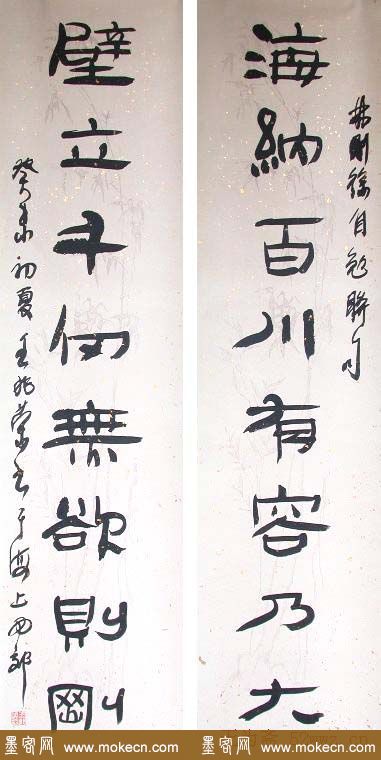 林則徐自勉聯句
海納百川有容乃大
壁立千仞無欲則剛
癸未初夏王兆榮书于海上西郊
墨客网 www.mokecn.com
墨客网 www.mokecn.com